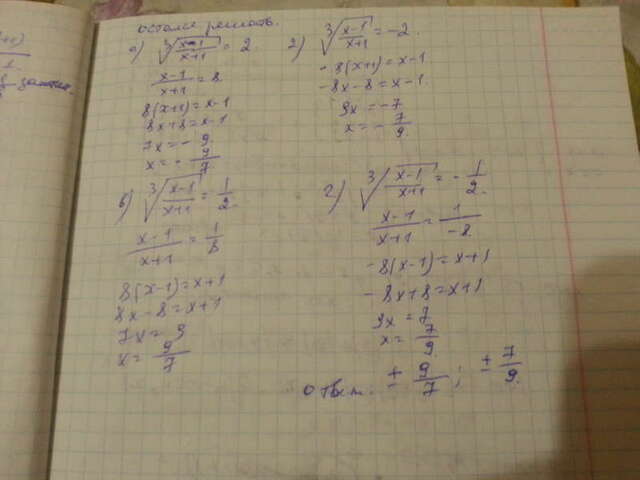 осталось решить.
а) ∛((x-1)/(x+1)) = 2.
(x-1)/(x+1) = 8.
8(x+1) = x-1
8x+8 = x-1
7x = - 9.
x = - 9/7
б) ∛((x-1)/(x+1)) = 1/2.
(x-1)/(x+1) = 1/8
8(x-1) = x+1
8x-8 = x+1
7x = 9
x = 9/7
2) ∛((x-1)/(x+1)) = -2
-8(x+1) = x-1
-8x-8 = x-1.
9x = -7
x = - 7/9.
г) ∛((x-1)/(x+1)) = - 1/2.
(x-1)/(x+1) = 1/-8
-8(x-1) = x+1
-8x+8 = x+1
9x = 7
x = 7/9.
Ответ. ± 9/7; ± 7/9.